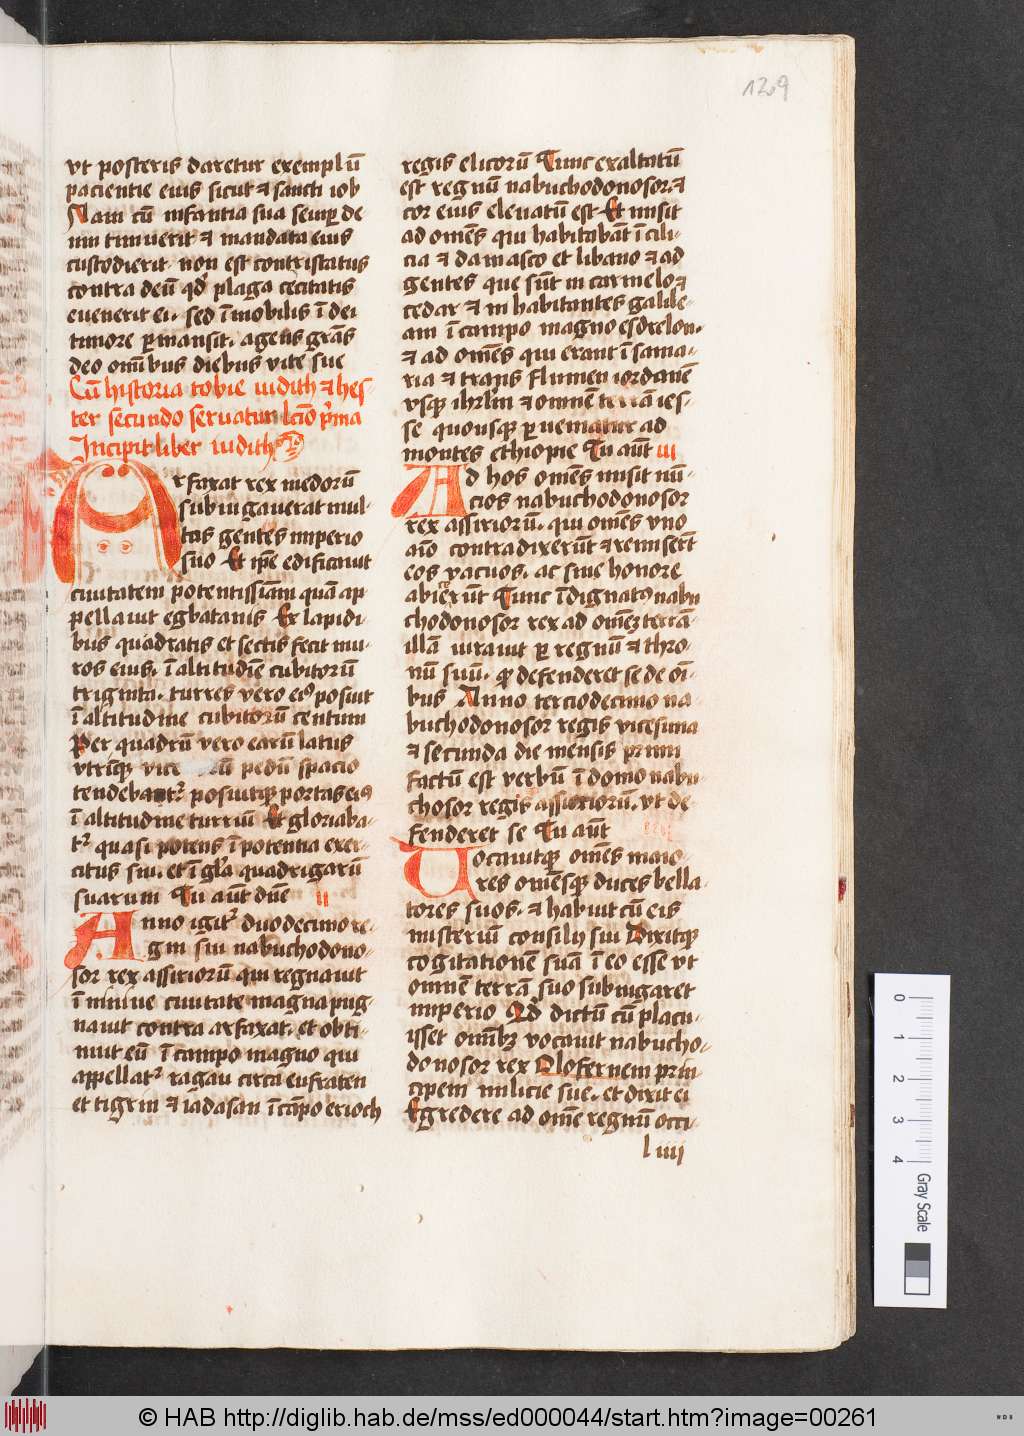 1209
vt posteris daretur exemplū
pacientie eius sicut ⁊ sancti iob
Nam cū infantia sua semp̄ de
um timuerit ⁊ mandata eius
custodierit non est contristatus
contra deū qd̓ plaga cecitatis
euenerit ei. sed īmobilis ī dei
timore ꝑmansit. agens gra̅s
deo om̄ibus diebus vite sue
Cū historia tobie iudith ⁊ hes-
ter secundo seruatur lc̄io p̓ma
Incipit liber iudith
Arfaxat rex medorū
subiugauerat mul-
tas gentes imperio
suo Et ip̄e edificauit
ciuitatem potentissīam quā ap
pellauit egbatanis Ex lapidi-
bus quadratis et sectis fecit mu-
ros eius. ī altitudiē cubitorū
triginta. turres vero eiꝰ posuit
ī altitudine cubitorū centum
Per quadrū vero earū latus
vtrūq̓ vice ū pedū spacio
tendebatr̓ posuitq̓ portas eiꝰ
ī altitudine turriū Et gloriaba-
tr̓ quasi potens ī potentia exer-
citus sui. et ī gl̓a quadrigarū
suarum Tu aūt dn̄e ii
Anno igitr̓ duodecimo re-
gni sui nabuchodono-
sor rex assiriorū qui regnauit
ī niniue ciuitate magna pug-
nauit contra arfaxat. et obti-
nuit eū ī campo magno qui
appellatr̓ ragau circa eufraten
et tigrin ⁊ iadasan ī cāpo erioch
regis elicorū Tunc exaltatū
est regnū nabuchodonosor. ⁊
cor eius eleuatū est Et misit
ad om̄es qui habitabāt ī cili-
cia ⁊ damasco et libano ⁊ ad
gentes que sūt in carmelo ⁊
cedar ⁊ inhabitantes galile-
am ī campo magno esdrelon.
⁊ ad om̄es qui erant ī sama-
ria ⁊ trans flumen iordanē
vsq̓ ihrl̓m ⁊ omnē terrā ies-
se quousq̓ ꝑueniatur ad
montes ethiopie Tu aūt iii
Ad hos om̄es misit nū-
cios nabuchodonosor
rex assiriorū. qui om̄es vno
aīo contradixerūt ⁊ remiserūt
eos vacuos. ac sine honore
abierūt Tunc īdignatꝰ nabu
chodonosor rex ad omēꝫ terrā
illā iurauit ꝑ regnū ⁊ thro-
nū suū. qd̓ defenderet se de oī-
bus Anno terciodecimo na-
buchodonosor regis vicesima
⁊ secunda die mensis primi
factū est verbū ī domo nabu-
chosor regis assiriorū. vt de-
fenderet se Tu aūt
Uocauitq̓ om̄es maio-
res om̄esq̓ duces bella-
tores suos. ⁊ habuit cū eis
misteriū consilij sui Dixitq̓
cogitationē suā ī eo esse vt
omnē terrā suo subiugaret
imperio Qd̓ dictū cū placu-
isset om̄ibꝫ vocauit nabucho-
donosor rex Olofernem prin-
cipem milicie sue. et dixit ei
Egredere ad omē regnū occi-
l iiii
0
1
2
3
4
Gray Scale
© HAB http://diglib.hab.de/mss/ed000044/start.htm?image=00261